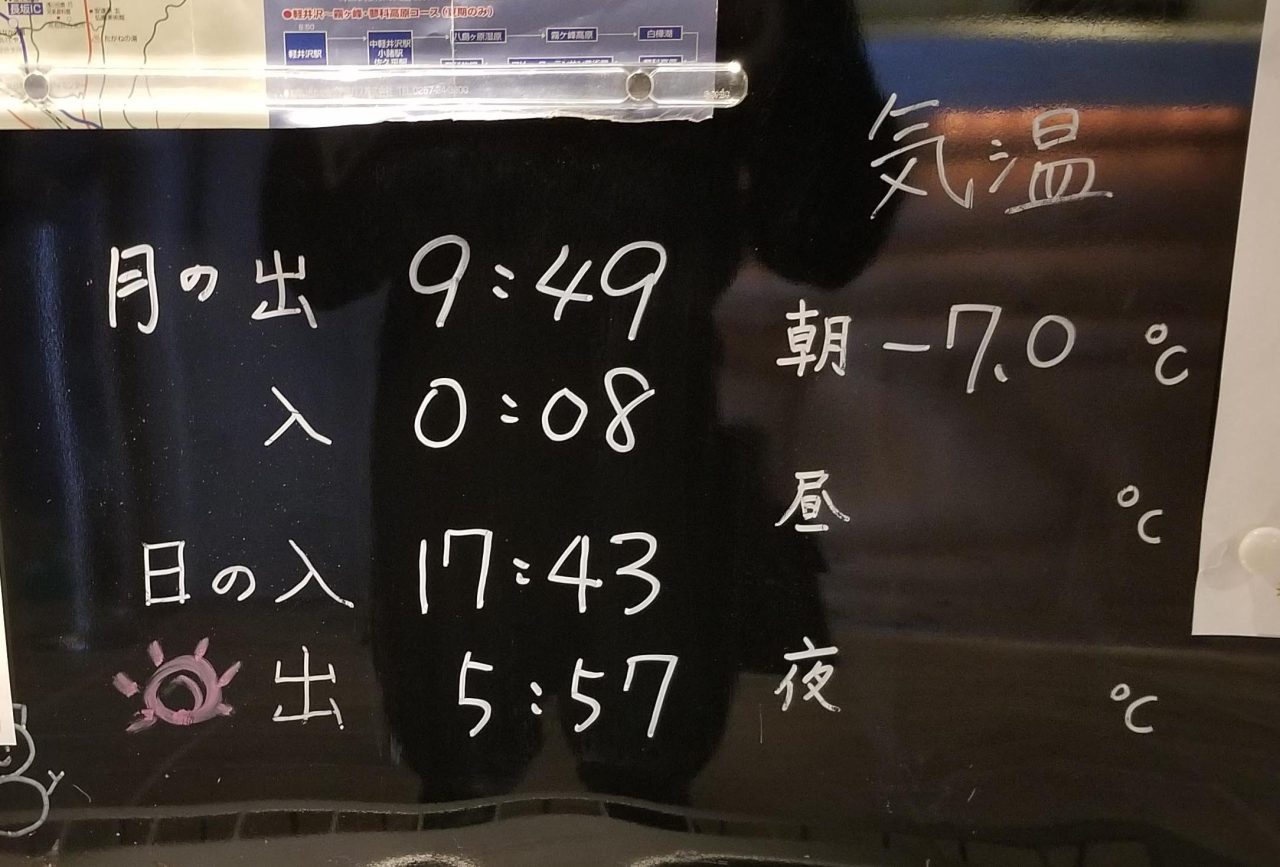 長坂IC
●軽井沢~霧ヶ峰・蓼科高原コース(夏期のみ)
8:50
軽井沢駅
中軽井沢駅
小諸駅
佐久平駅
八島ヶ原湿原
霧ヶ峰高原
白樺湖
気温
月の出 9:49
入 0:08
日の入 17:43
出 5:57
朝 -7.0 ℃
昼 ℃
夜 ℃